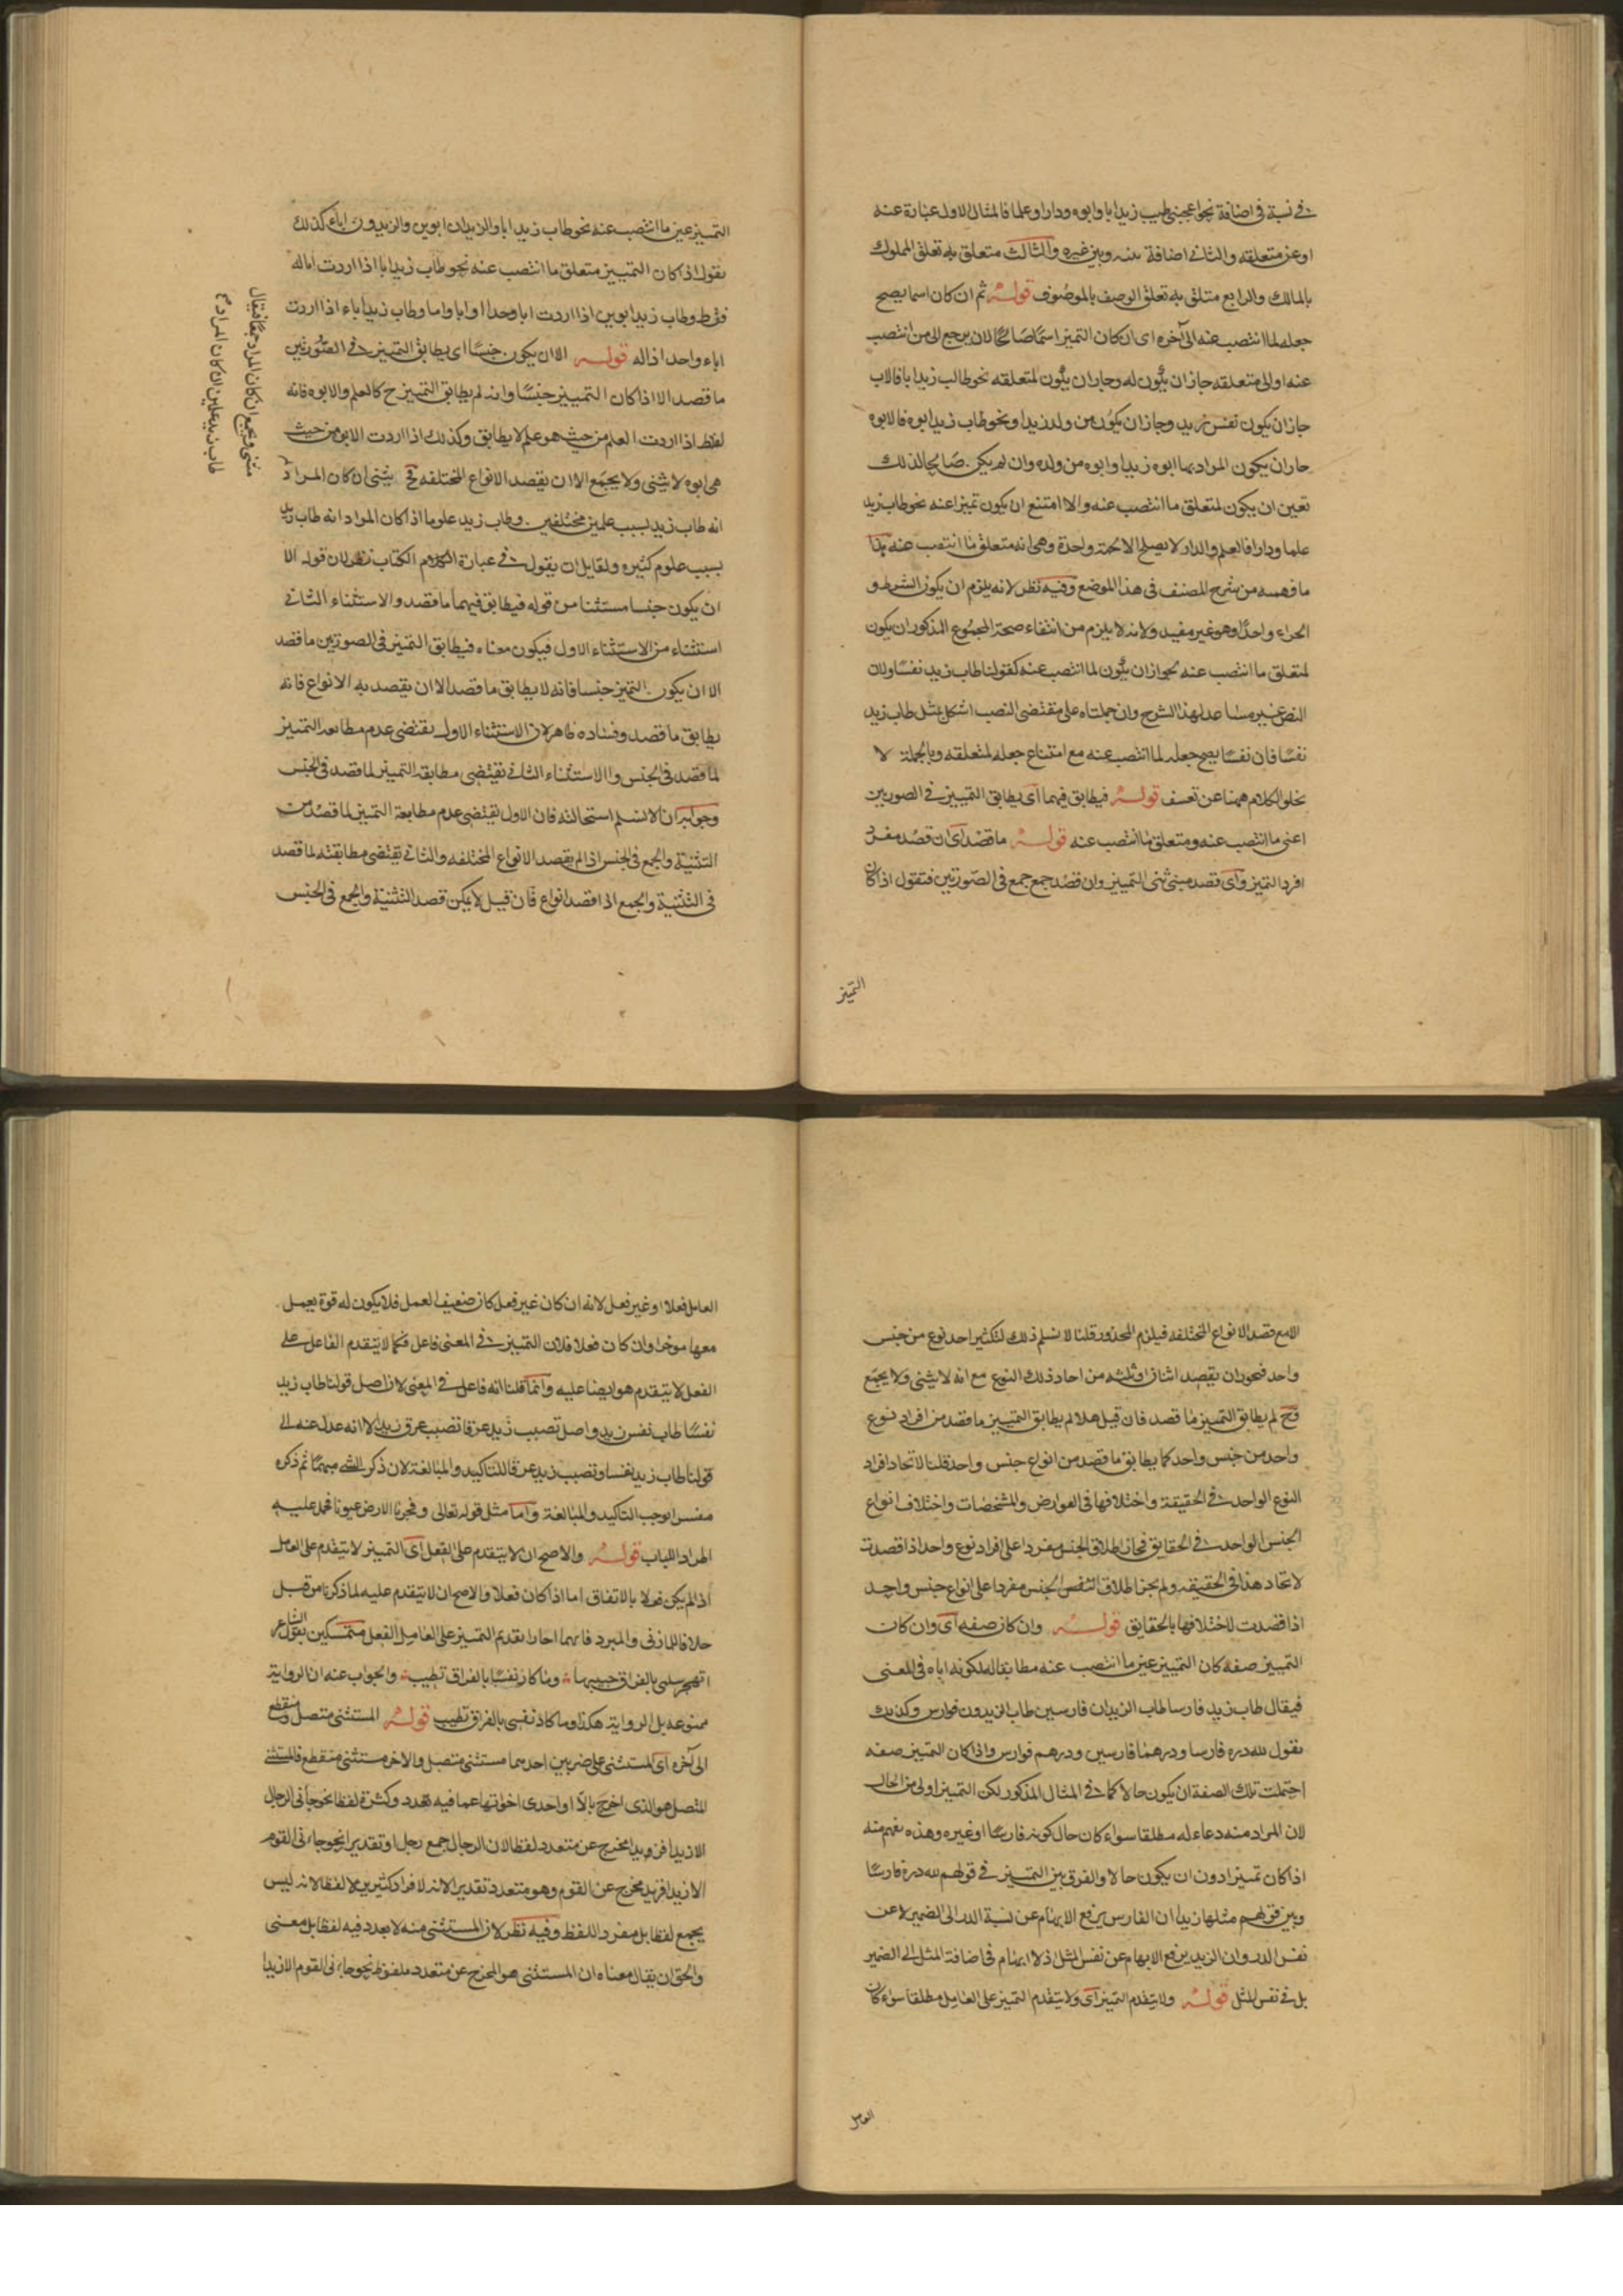 في نسبة في اضافة نحو اعجبني طيب زيد ابا وابوه ودارا وعلما فالمثال الاول عبارة عنه
او عن متعلقه والثاني اضافة بينه وبين غيره والثالث متعلق به تعلق المملوك
بالمالك والرابع متلق به تعلق الوصف بالموصوف قوله ثم ان كان اسما يصح
جعله لما انتصب عنه الى آخره اى ان كان التميز اسما صالحا لان يرجع الى من انتصب
عنه او الى متعلقه جاز ان يكون له وجاز ان يكون لمتعلقه نحو طاب زيد ابا فالاب
جاز ان يكون نفس زيد وجاز ان يكون من ولد زيدا ونحو طاب زيد ابوه فالابوه
جاز ان يكون المراد بها ابوه زيد او ابوه من ولده وان لم يكن صالحا لذلك
تعين ان يكون لمتعلق ما انتصب عنه والا امتنع ان يكون تميزا عنه نحو طاب زيد
علما ودارا فالعلم والدار لا يصلح الا لجهة واحدة وهى انه متعلق ما انتصب عنه هذا
ما فهمه من شرح المصنف في هذا الموضع وفيه نظر لانه يلزم ان يكون الشرط و
الجزاء واحدا وهو غير مفيد ولانه لا يلزم من انتفاء صحة المجموع المذكور ان يكون
لمتعلق ما انتصب عنه لجواز ان يكون لما انتصب عنه كقولنا طاب زيد نفسا ولان
النص غير مساعد لهذا الشرح وان حملناه على مقتضى النصب اشكل بمثل طاب زيد
نفسا فان نفسا يصح جعله لما انتصب عنه مع امتناع جعله لمتعلقه وبالجملة لا
يخلو الكلام ههنا عن تعسف قوله فيطابق فيهما اى يطابق التمييز في الصورتين
اعنى ما انتصب عنه ومتعلق ما انتصب عنه قوله ما قصد اى ان قصد مفرد
افرد التميز واى قصد مثنى ثنى التمييز وان قصد جمع جمع في الصورتين فتقول اذا كان
التميز
التمييز عين ما انتصب عنه نحو طاب زيد ابا والزيدان ابوين والزيدون اباء كذلك
نقول اذا كان التمييز متعلق ما انتصب عنه نحو طاب زيد ابا اذا اردت اباله
فقط وطاب زيد ابوين اذا اردت ابا وحدا او ابا واما وطاب زيد اباء اذا اردت
اباء واحد اذاله قوله الا ان يكون جنسا اى يطابق التمييز في الصورتين
ما قصد الا اذا كان التمييز جنسا وانه لم يطابق التمييز ح كالعلم والابوه فانه
لفظ اذا اردت العلم من حيث هو علم لا يطابق وكذلك اذا اردت الابوه من حيث
هى ابوه لا يثنى ولا يجمع الا ان يقصد الانواع المختلفه فح يثنى ان كان المراد
انه طاب زيد بسبب علمين مختلفين وطاب زيد علوما اذا كان المراد انه طاب زيد
بسبب علوم كثيره ولقايل ان يقول في عبارة الكلام الكتاب نظر لان قوله الا
ان يكون جنسا مستثنا من قوله فيطابق فيهما ما قصد والاستثناء الثاني
استثناء من الاستثناء الاول فيكون معناه فيطابق التميز في الصورتين ما قصد
الا ان يكون التميز جنسا فانه لا يطابق ما قصد الا ان يقصد به الانواع فانه
يطابق ما قصد وفساده ظاهر لان الاستثناء الاول يقتضى عدم مطابقة التمييز
لما قصد في الجنس والاستثناء الثاني يقتضى مطابقة التميز لما قصد في الجنس
وجوابه انا لا نسلم استحالته فان الاول يقتضى عدم مطابقة التميز لما قصد من
التثنية والجمع في الجنس اذا لم يقصد الانواع المختلفه والثاني يقتضى مطابقته لما قصد
في التثنية والجمع اذا قصد انواع فان قيل لا يمكن قصد التثنية والجمع في الجنس
مثنى ويجمع ان كان المراد جمعا فيقال
طاب زيد علمين ان كان المراد م
الا مع قصد الانواع المختلفه فيلزم المحذور قلنا لا نسلم ذلك لتكثير احد نوع من جنس
واحد فيجوز ان يقصد اثنان او ثلثه من احاد ذلك النوع مع انه لا يثنى ولا يجمع
فح لم يطابق التمييز ما قصد فان قيل هلا لم يطابق التمييز ما قصد من افراد نوع
واحد من جنس واحد كما يطابق ما قصد من انواع جنس واحد قلنا لاتحاد افراد
النوع الواحد في الحقيقة واختلافها في العوارض والمشخصات واختلاف انواع
الجنس الواحد في الحقايق فجاز اطلاق الجنس مفردا على افراد نوع واحد اذا قصدت
لاتحاد هذا في الحقيقه ولم يجز اطلاق الجنس مفردا على انواع جنس واحد
اذا قصدت لاختلافها بالحقايق قوله وان كان صفه اى وان كان
التمييز صفه كان التمييز عين ما انتصب عنه مطابقا له لكونه اياه في المعنى
فيقال طاب زيد فارسا طاب الزيدان فارسين طاب الزيدون فوارس وكذلك
نقول لله دره فارسا ودرهما فارسين ودرهم فوارس واذا كان التمييز صفه
احتملت تلك الصفة ان يكون حالا كما في المثال المذكور لكن التمييز اولى من الحال
لان المراد منه دعاء له مطلقا سواء كان حال كونه فارسا او غيره وهذه يفهم منه
اذا كان تميزا دون ان يكون حالا والفرق بين التمييز في قولهم لله دره فارسا
وبين قولهم مثلها زيدا ان الفارس يرفع الابهام عن نسبة الدر الى الضمير لا عن
نفس الدر وان الزيد يرفع الابهام عن نفس المثل اذ لا ابهام في اضافة المثل الى الضمير
بل في نفس المثل قوله ولا يتقدم التميز اى ولا يتقدم التميز على العامل مطلقا سواء كان
العامل
العامل فعلا او غير فعل لانه ان كان غير فعل كان ضعيف العمل فلا يكون له قوة يعمل
معها موخرا وان كان فعلا فلان التمييز في المعنى فاعل فكما لا يتقدم الفاعل على
الفعل لا يتقدم هو ايضا عليه وانما قلنا انه فاعل في المعنى لان اصل قولنا طاب زيد
نفسا طاب نفس زيد واصل تصبب زيد عرقا تصبب عرق زيد الا انه عدل عنه الى
قولنا طاب زيد نفسا وتصبب زيد عرقا للتاكيد والمبالغة لان ذكر الشى مبهما ثم ذكره
مفسرا يوجب التاكيد والمبالغة واما مثل قوله تعالى وفجرنا الارض عيونا فمحمد عليه
المراد اللباب قوله والاصح ان لا يتقدم على الفعل اى التمييز لا يتقدم على العامل
اذا لم يكن فعلا بالاتفاق اما اذا كان فعلا والاصح ان لا يتقدم عليه لما ذكرنا من قبل
خلافا للمازنى والمبرد فانهما اجازا تقديم التمييز على العامل الفعل متمسكين بقول الشاعر
اتهجر سلمى بالفراق حبيبها وما كاد نفسا بالفراق تطيب والجواب عنه ان الرواية
ممنوعه بل الرواية هكذا وما كاد نفسى بالفراق تطيب قوله المستثنى متصل ومنقطع
الى آخره اى المستثنى على ضربين احدهما مستثنى متصل والاخر مستثنى منقطع فالمستثنى
المتصل هو الذى اخرج بالا او احدى اخواتها عما فيه تعدد وكثرة لفظا نحو جاءنى الرجال
الا زيدا فزيد مخرج عن متعدد لفظا لان الرجال جمع رجل او تقديرا نحو جاءنى القوم
الا زيدا فزيد مخرج عن القوم وهو متعدد تقديرا لانه لافراد كثيرين لا لفظا لانه ليس
بجمع لفظا بل مفرد اللفظ وفيه نظر لان المستثنى منه لا تعدد فيه لفظا بل معنى
والحق ان يقال معناه ان المستثنى هو المخرج عن متعدد ملفوظ نحو جاءنى القوم الا زيدا